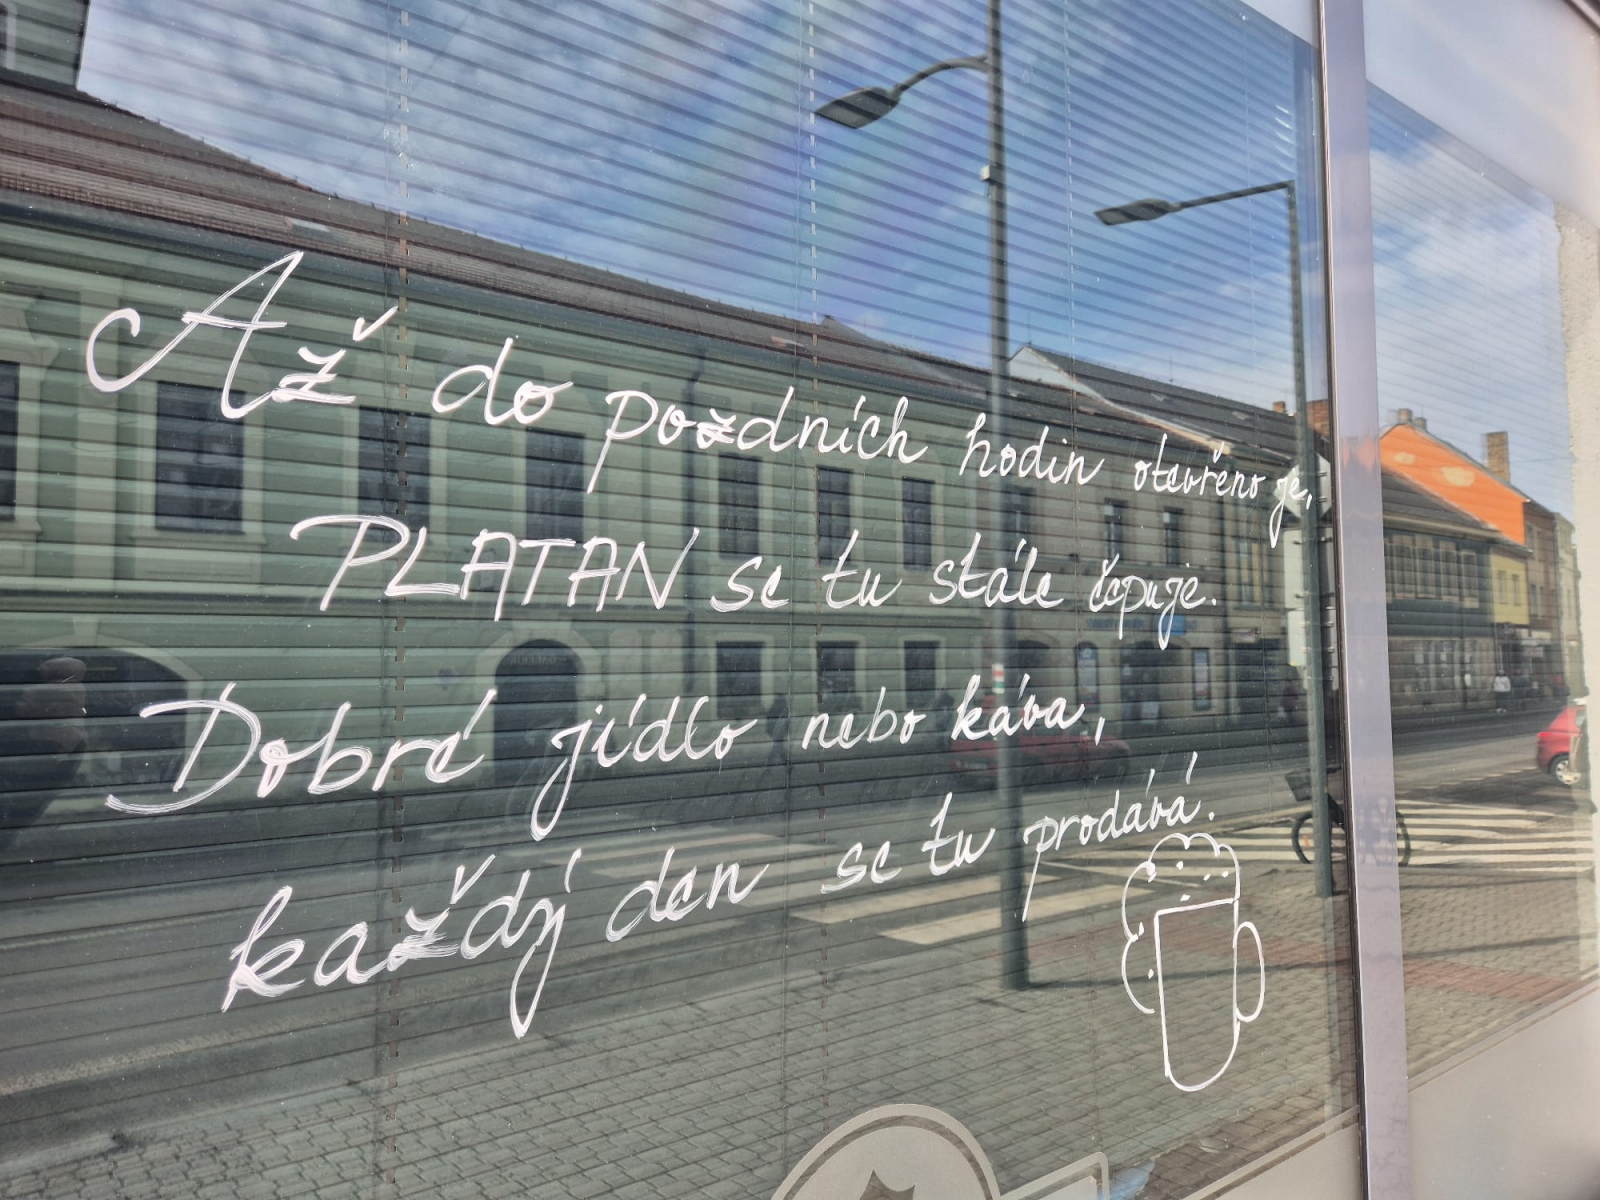 Až do pozdních hodin otevřeno je,
PLATAN se tu stále čepuje.
Dobré jídlo nebo káva,
každý den se tu prodává.